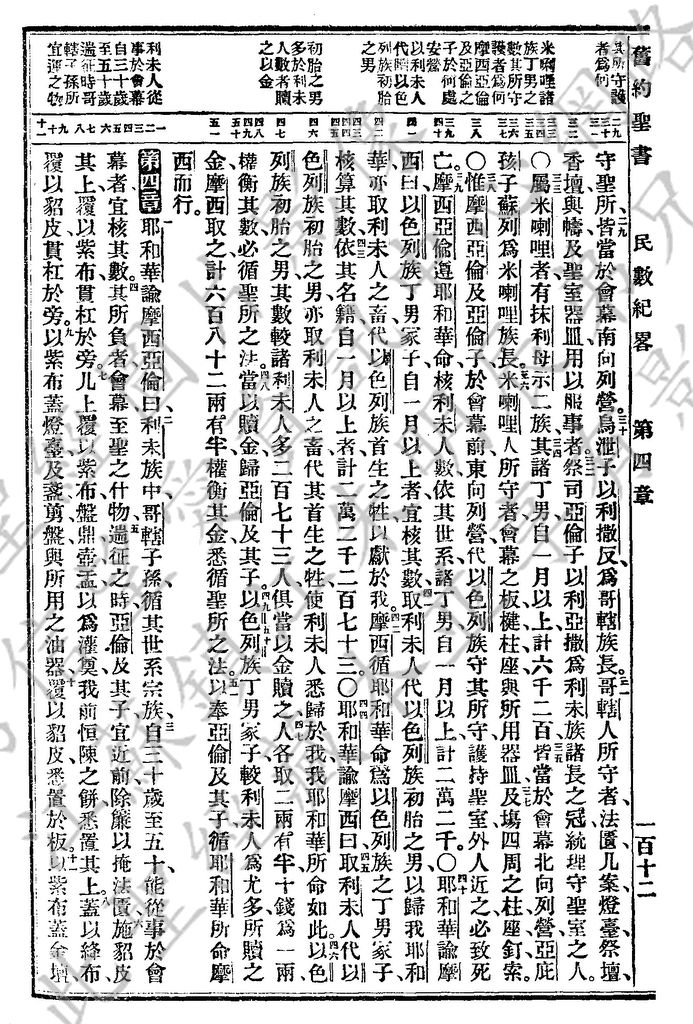 舊約聖書 民數紀畧 第四章 一百十二
其所守護
者爲何
米喇哩諸
族丁男之
數其所守
護者爲何
摩西亞倫
及亞倫之
子於何處
安營
以利未人
代贖以色
列族初胎
之男
初胎之男
多於利未
人數者贖
之以金
利未人從
事於會幕
自三十歲
至五十歲
遄征時哥
轄子孫所
宜運之物
守聖所、皆當於會幕南向列營、烏泄子以利撒反爲哥轄族長、哥轄人所守者、法匱、几案、燈臺、祭壇、
香壇、與幬、及聖室器皿、用以服事者、祭司亞倫子以利亞撒爲利未族諸長之冠、統理守聖室之人。
○屬米喇哩者、有抹利母示二族、其諸丁男、自一月以上、計六千二百、皆當於會幕北向列營、亞庇
孩子蘇列爲米喇哩族長、米喇哩人所守者、會幕之板、楗柱座、與所用器皿、及場四周之柱座釘索。
○惟摩西亞倫、及亞倫子、於會幕前東向列營、代以色列族守其所守、護持聖室、外人近之必致死
亡、摩西亞倫遵耶和華命、核利未人數、依其世系、諸丁男自一月以上、計二萬二千。○耶和華諭摩
西曰、以色列族丁男冢子、自一月以上者、宜核其數、取利未人代以色列族初胎之男、以歸我耶和
華、亦取利未人之畜、代以色列族首生之牲、以獻於我、摩西循耶和華命、爲以色列族之丁男冢子、
核算其數、依其名籍、自一月以上者、計二萬二千二百七十三。○耶和華諭摩西曰、取利未人代以
色列族初胎之男、亦取利未人之畜、代其首生之牲、使利未人悉歸於我、我耶和華所命如此、以色
列族初胎之男、其數較諸利未人多二百七十三人、俱當以金贖之、人各取二兩有半、十錢爲一兩、
權衡其數、必循聖所之法、當以贖金歸亞倫及其子、以色列族丁男冢子、較利未人爲尤多、所贖之
金、摩西取之、計六百八十二兩有半、權衡其金、悉循聖所之法、以奉亞倫及其子、循耶和華所命摩
西而行。
第四章 耶和華諭摩西亞倫曰、利未族中、哥轄子孫、循其世系宗族、自三十歲至五十、能從事於會
幕者、宜核其數、其所負者、會幕至聖之什物、遄征之時、亞倫及其子、宜近前除簾、以掩法匱、施貂皮
其上、覆以紫布、貫杠於旁、几上覆以紫布、盤鼎壺盂、以爲灌奠、我前恒陳之餅、悉置其上、蓋以絳布、
覆以貂皮、貫杠於旁、以紫布蓋燈臺、及盞剪盤、與所用之油器、覆以貂皮、悉置於板、以紫布蓋金壇、